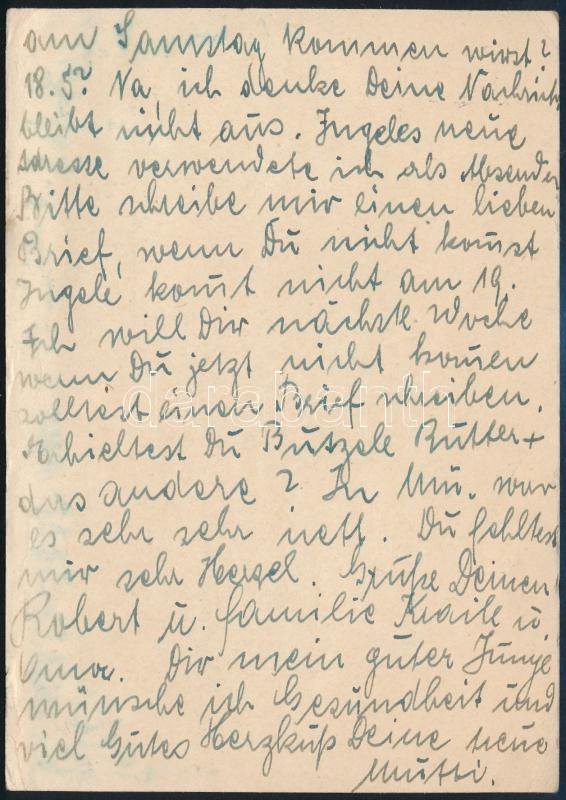 am Samstag kommen wirst?
18.5? Na, ich denke Deine Nachricht
bleibt nicht aus. Ingeles neue
Adresse verwendete ich als Absender
Bitte schreibe mir einen lieben
Brief, wenn Du nicht kom̅st
Ingele kom̅t nicht am 19.
Ich will Dir nächste Woche
wenn Du jetzt nicht kom̅en
solltest einen Brief schreiben.
Erhieltest Du Butzele Butter +
das andere? In Mü. war
es sehr sehr nett. Du fehltest
mir sehr Herzel. Grüße Deinen
Robert u. Familie u
Oma. Dir mein guter Junge
wünsche ich Gesundheit und
viel Gutes Herzkuß Deine treue
Mutti.
darabanth